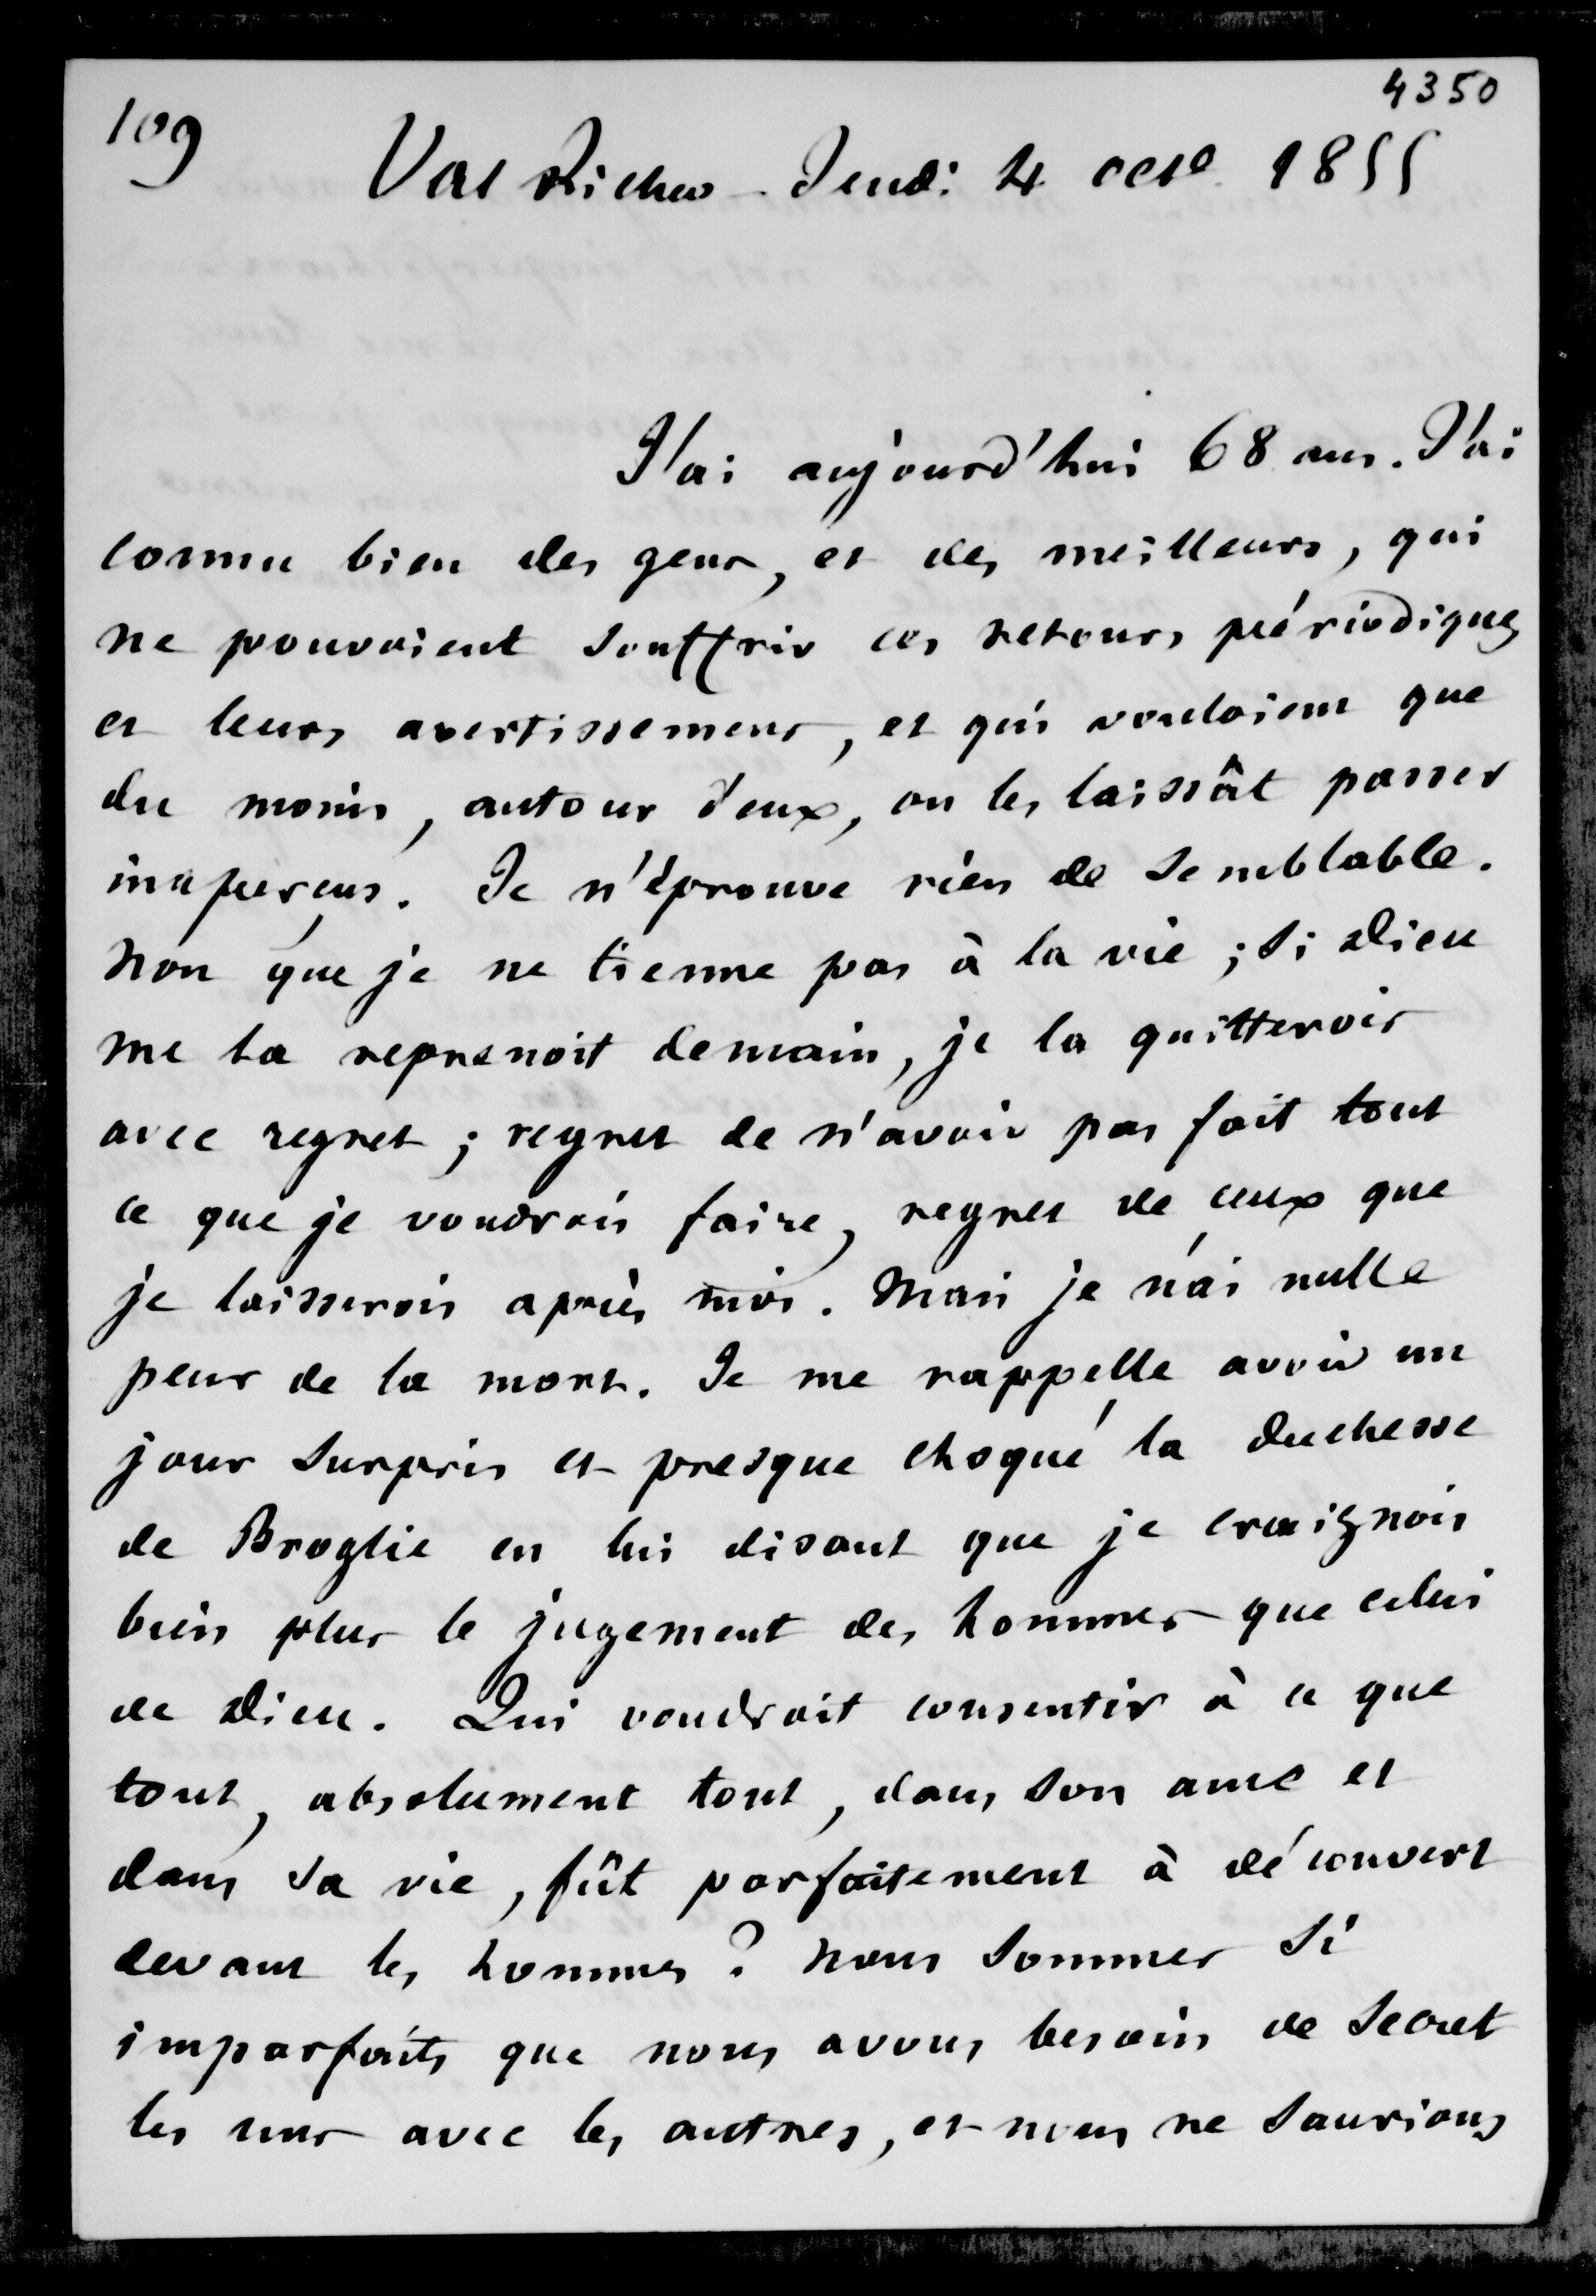 4350
109
Val Richer - Jeudi 4 octe 1855
J'ai aujourd'hui 68 ans. J'ai
connu bien des gens, et des meilleurs, qui
ne pouvoient souffrir ces retours périodiques
et leurs avertissemens, et qui vouloient que
du moins, autour d'eux, on les laissât passer
inaperçus. Je n'éprouve rien de semblable.
Non que je ne tienne pas à la vie ; si Dieu
me la reprenoit demain, je la quitterois
avec regret ; regret de n'avoir pas fait tout
ce que je voudrois faire, regret de ceux que
je laisserois après moi. Mais je n'ai nulle
peur de la mort. Je me rappelle avoir un
jour surpris et presque choqué la Duchesse
de Broglie en lui disant que je craignois
bien plus le jugement des hommes que celui
de Dieu. Qui voudroit consentir à ce que
tout, absolument tout, dans son ame et
dans sa vie, fût parfaitement à découvert
devant les hommes ? Nous sommes si
imparfaits que nous avons besoin de secret
les uns avec les autres, et nous ne saurions